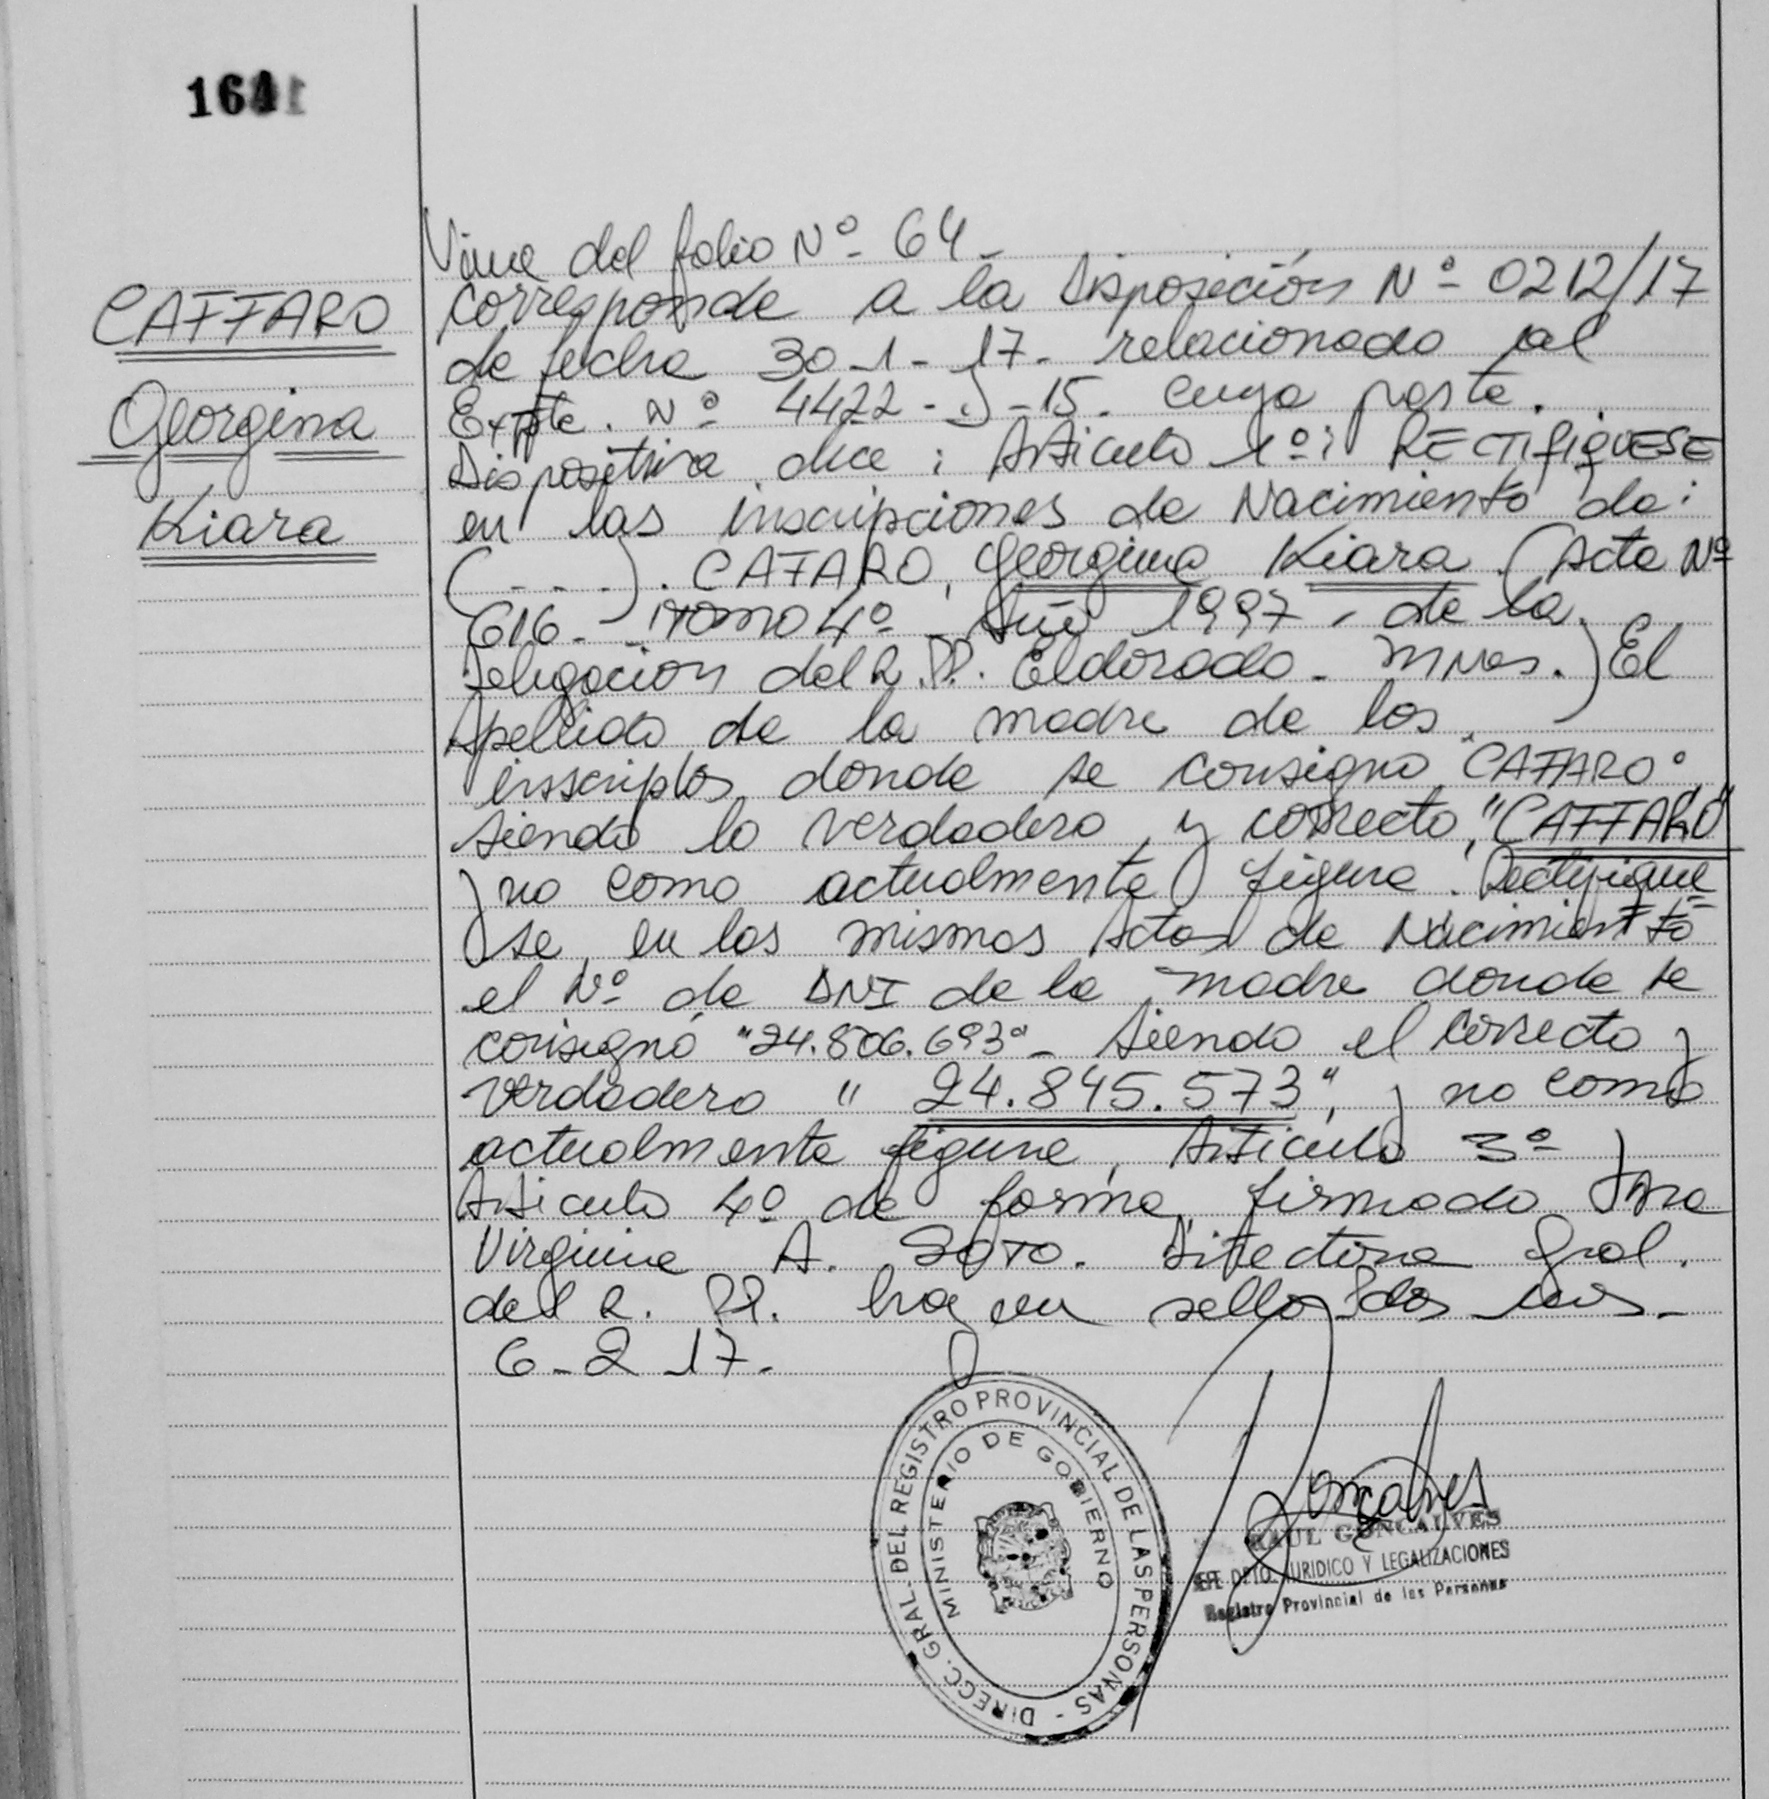 164
CAFFARO
Georgina
Kiara
Viene del folio Nº 64-
corresponde a la Disposición Nº 0212/17
de fecha 30-1-17- relacionado al
Expte. Nº 4422-J-15- cuya parte.
Dispositiva dice: Articulo 1º: RECTIFIQUESE
en las inscripciones de Nacimiento de:
(....). CAFARO, Georgina Kiara (Acta Nº
616- Tomo 4º Año 1997, de la
Delegacion del R.P.P. Eldorado- Mnes.) El
Apellido de la madre de los
inscriptos donde se consigno "CAFARO"
siendo lo verdadero y correcto, "CAFFARO"
y no como actualmente figura. Rectifique
se en los mismos Actas de Nacimiento
el Nº de DNI de la madre donde se
consignó "24.806.693"- siendo el correcto y
verdadero "24.845.573", y no como
actualmente figura, Articulo 3º y
Articulo 4º de forma firmado Dra
Virginia A. SOTO. Directora Gral.
del R.P.P. hay un sello Pdas Mnes-
6-2-17-
DIRECC. GRAL. DEL REGISTRO PROVINCIAL DE LAS PERSONAS -
MINISTERIO DE GOBIERNO
Goncalves
RAUL GONCALVES
DPTO JURIDICO Y LEGALIZACIONES
Registro Provincial de las Personas